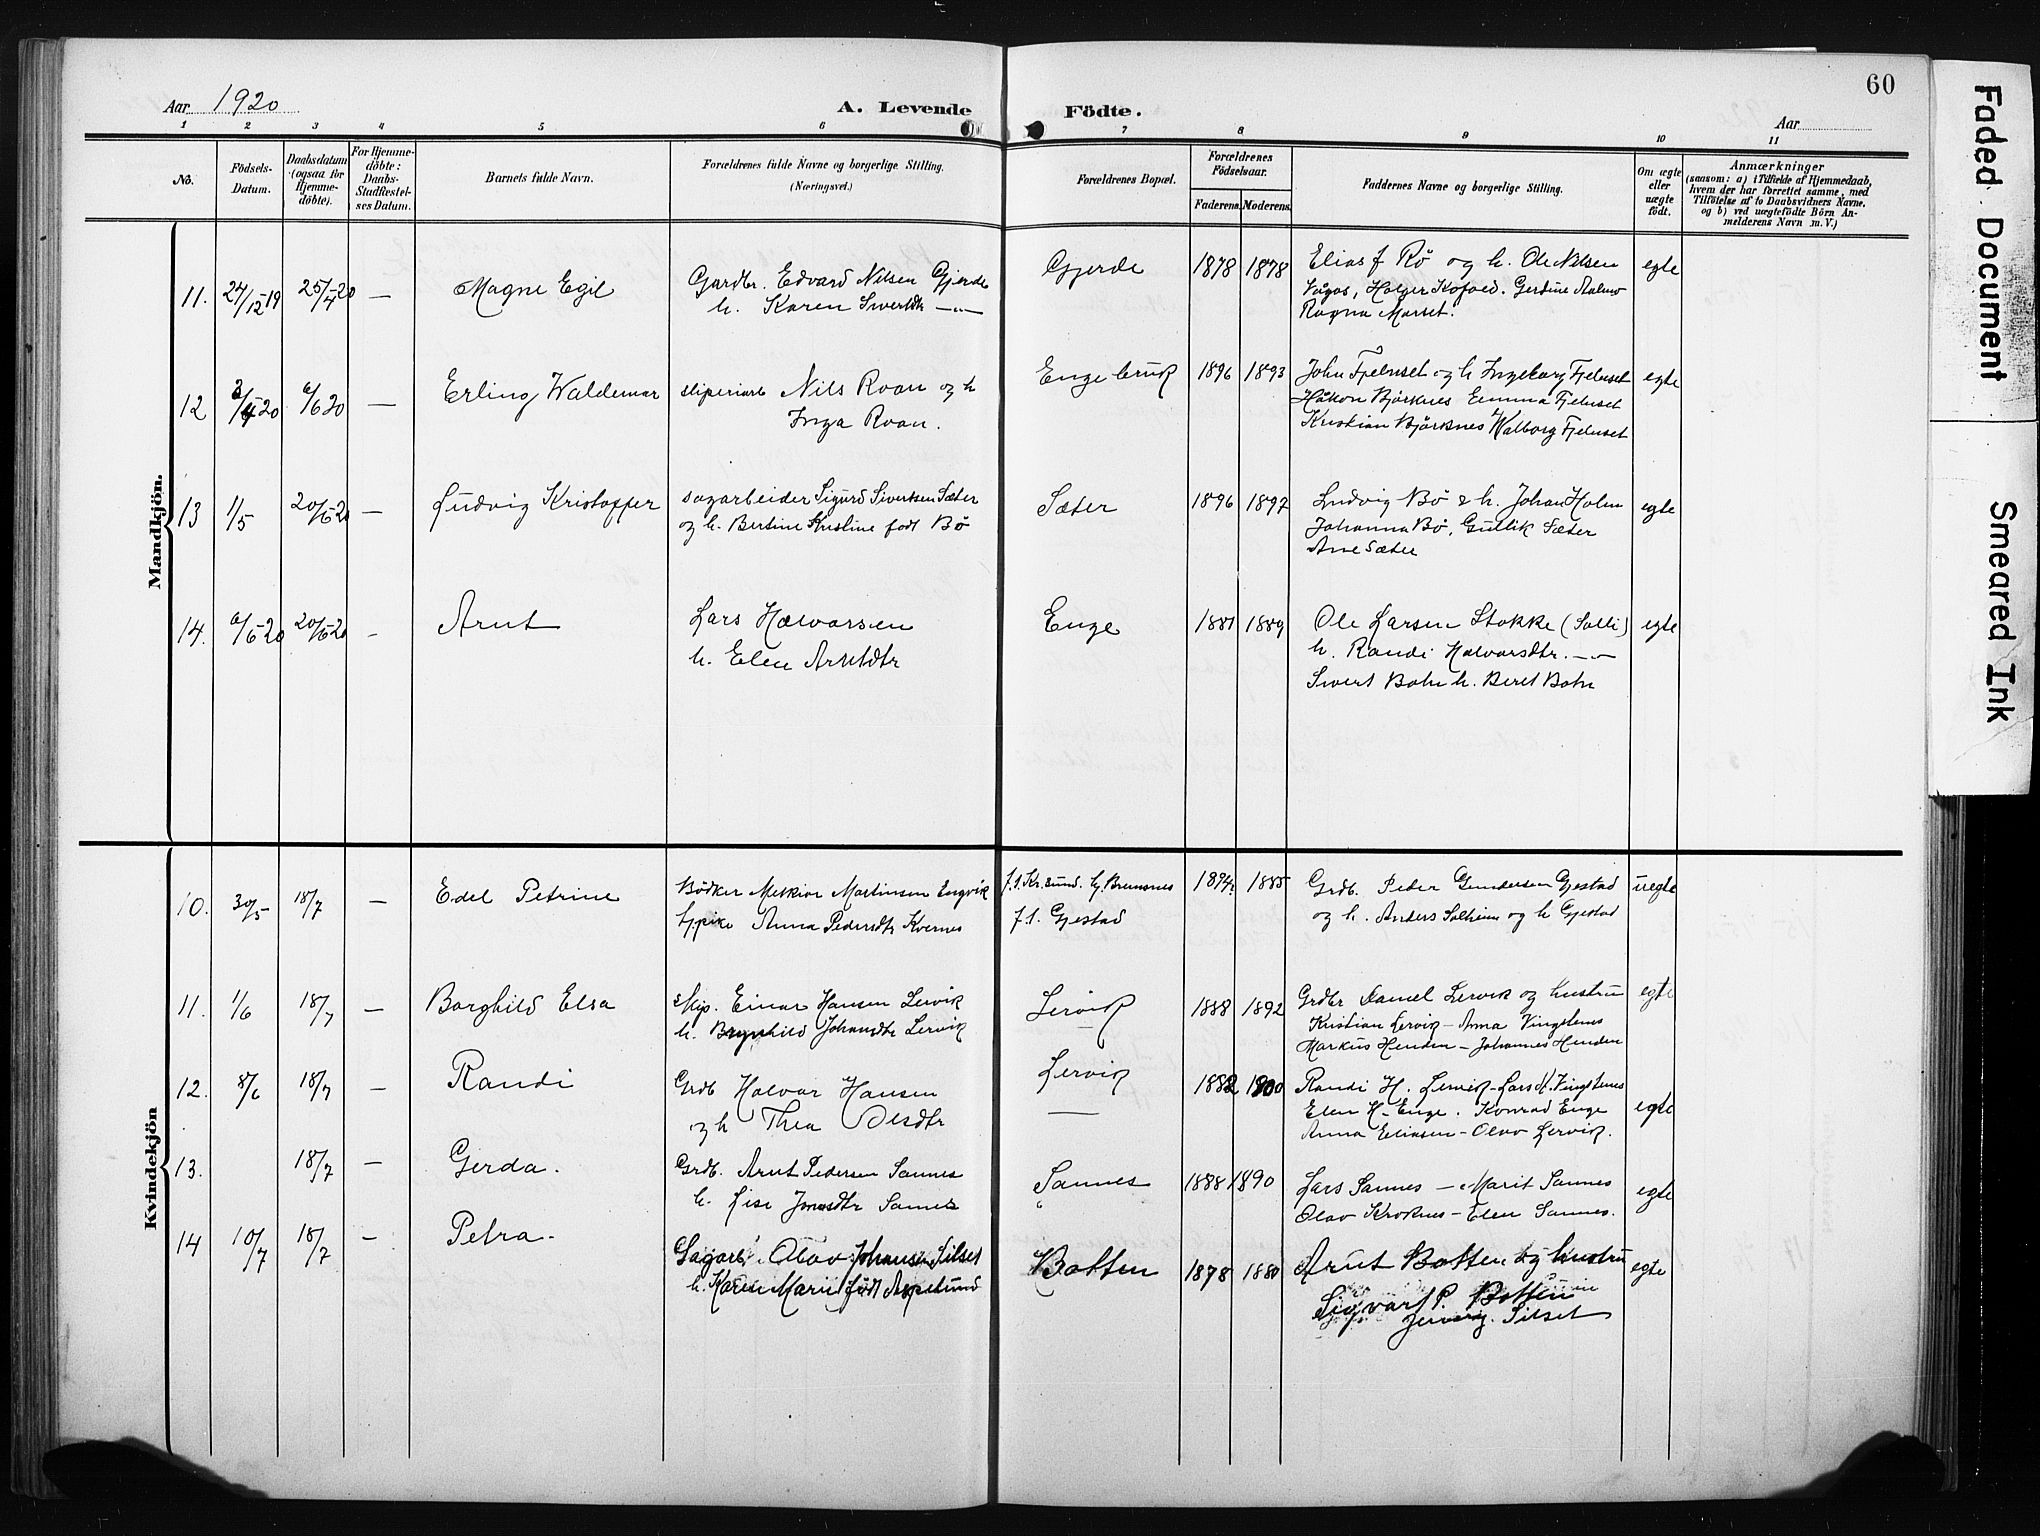 60
Faded Document
Smeared Ink
Aar 1920
A. Levende Födte.
Aar
1 2 3 4 5 6 7 8 9 10 11
No.
Födsels-Datum.
Daabsdatum (ogsaa for Hjemme-döbte).
For Hjemme-döbte: Daabs-Stadfæstel-ses Datum.
Barnets fulde Navn.
Forældrenes fulde Navne og borgerlige Stilling. (Næringsvei.)
Forældrenes Bopæl.
Forældrenes Födselsaar.
Faderens. Moderens.
Faddernes Navne og borgerlige Stilling.
Om ægte eller uægte födt.
Anmærkninger
(saasom: a) i Tilfælde af Hjemmedaab, hvem der har forrettet samme, med Tilföielse af to Daabsvidners Navne, og b) ved uægtefödte Börn An-melderens Navn m. V.)
Mandkjön.
11. 24/12 19 25/4-20 — Magne Egil
Gardbr. Edvard Nilsen Gjerde
h. Karen Sivertdtr —"—
Gjerde 1878 1878
Elias J Rø og h. Ole Nilsen
Vågos, Holger Kofoed. Gerdine
Ragna Marset.
egte
12 3/4 20 6/6 20 — Erling Waldemar
sliperiarb Nils Roan og h
Inga Roan.
Enge bruk 1896 1893
John Fjelnset og h Ingeborg Fjelnset
Håkon Bjørknes Emma Fjelnset
Kristian Bjørknes Walborg Fjelnset
egte
13 1/5 20/6-20 — Ludvig Kristoffer
sagarbeider Sigurd Sivertsen Sæter
og h. Bertine Kristine født Bö
Sæter 1896 1897
Ludvig Bö & h. Johan Holm
Johanna Bö, Gullik Sæter
Ane Sæter
egte
14. 6/5-20 20/6-20 - Arnt
Lars Halvorsen
h. Elen Arntdtr
Enge 1881 1889
Ole Larsen Stokke (Solli)
h. Randi Halvorsdtr. —"—
Sivert Bohn h. Beret Bohn
egte
Kvindekjön
10. 30/5 18/7 — Edel Petrine
Bödker Melkior Martinsen Engvik
tj.pike Anna Pedersdtr Kvernes
f.s. Kr.sund. hj. Bremsnes
f.s. Gjestad
1894 1885
Grdb. Peder Gundersen Gjestad
og h. Anders Solheim og h Gjestad
uegte
11. 1/6 18/7 — Borghild Elsa
Skip. Einar Hansen Lervik
h. Brynhild Johansdtr Lervik
Lervik 1888 1892
Grdbr Daniel Lervik og hustru
Kristian Lervik - Anna Vingstenes
Markus Henden - Johannes Henden
egte
12. 8/6 18/7 — Randi
Grdb Halvor Hansen
og h Thea Olesdtr
Lervik 1882 1900
Randi H. Lervik - Lars M. Vingstenes
Elen H. Enge. Konrad Enge
Anna Eliasen - Olav Lervik.
egte
13. 18/7 — Gerda.
Grdb. Arnt Pedersen Sannes
h. Lise Jonasdtr Sannes
Sannes 1888 1890
Lars Sannes - Marit Sannes
Olav Kroknes - Elen Sannes.
egte
14 10/7 18/7 — Petra.
Sagarb. Olav Johansen Silset
h. Karen Marie født Aspelund
Botten 1878 1880
Arnt Botten og hustru
Sigvart P. Botten
Silset
egte